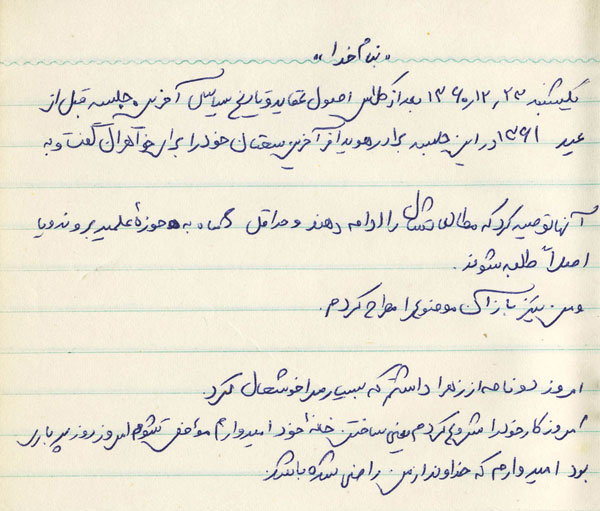 «بنام خدا»
یکشنبه ۱۳۶۰،۱۲،۲۳ بعد از کلاس اصول عقاید و تاریخ سیاسی آخرین جلسه قبل از
عید ۱۳۶۱ در این جلسه برادر هویدافر آخرین سخنان خود را برای خواهران گفت و به
آنها توصیه کرد که مطالعاتشان را ادامه دهند و حداقل ۶ ماه به حوزهٔ علمیه بروند و یا
اصلاً طلبه شوند.
و من نیز باز آن موضوع را مطرح کردم.
امروز دو نامه از زهرا داشتم که بسیار مرا خوشحال کرد.
امروز کار خود را شروع کردم یعنی ساختن خانهٔ خود امیدوارم موفق بشوم امروز روز پر باری
بود امیدوارم که خداوند از من راضی شده باشد.